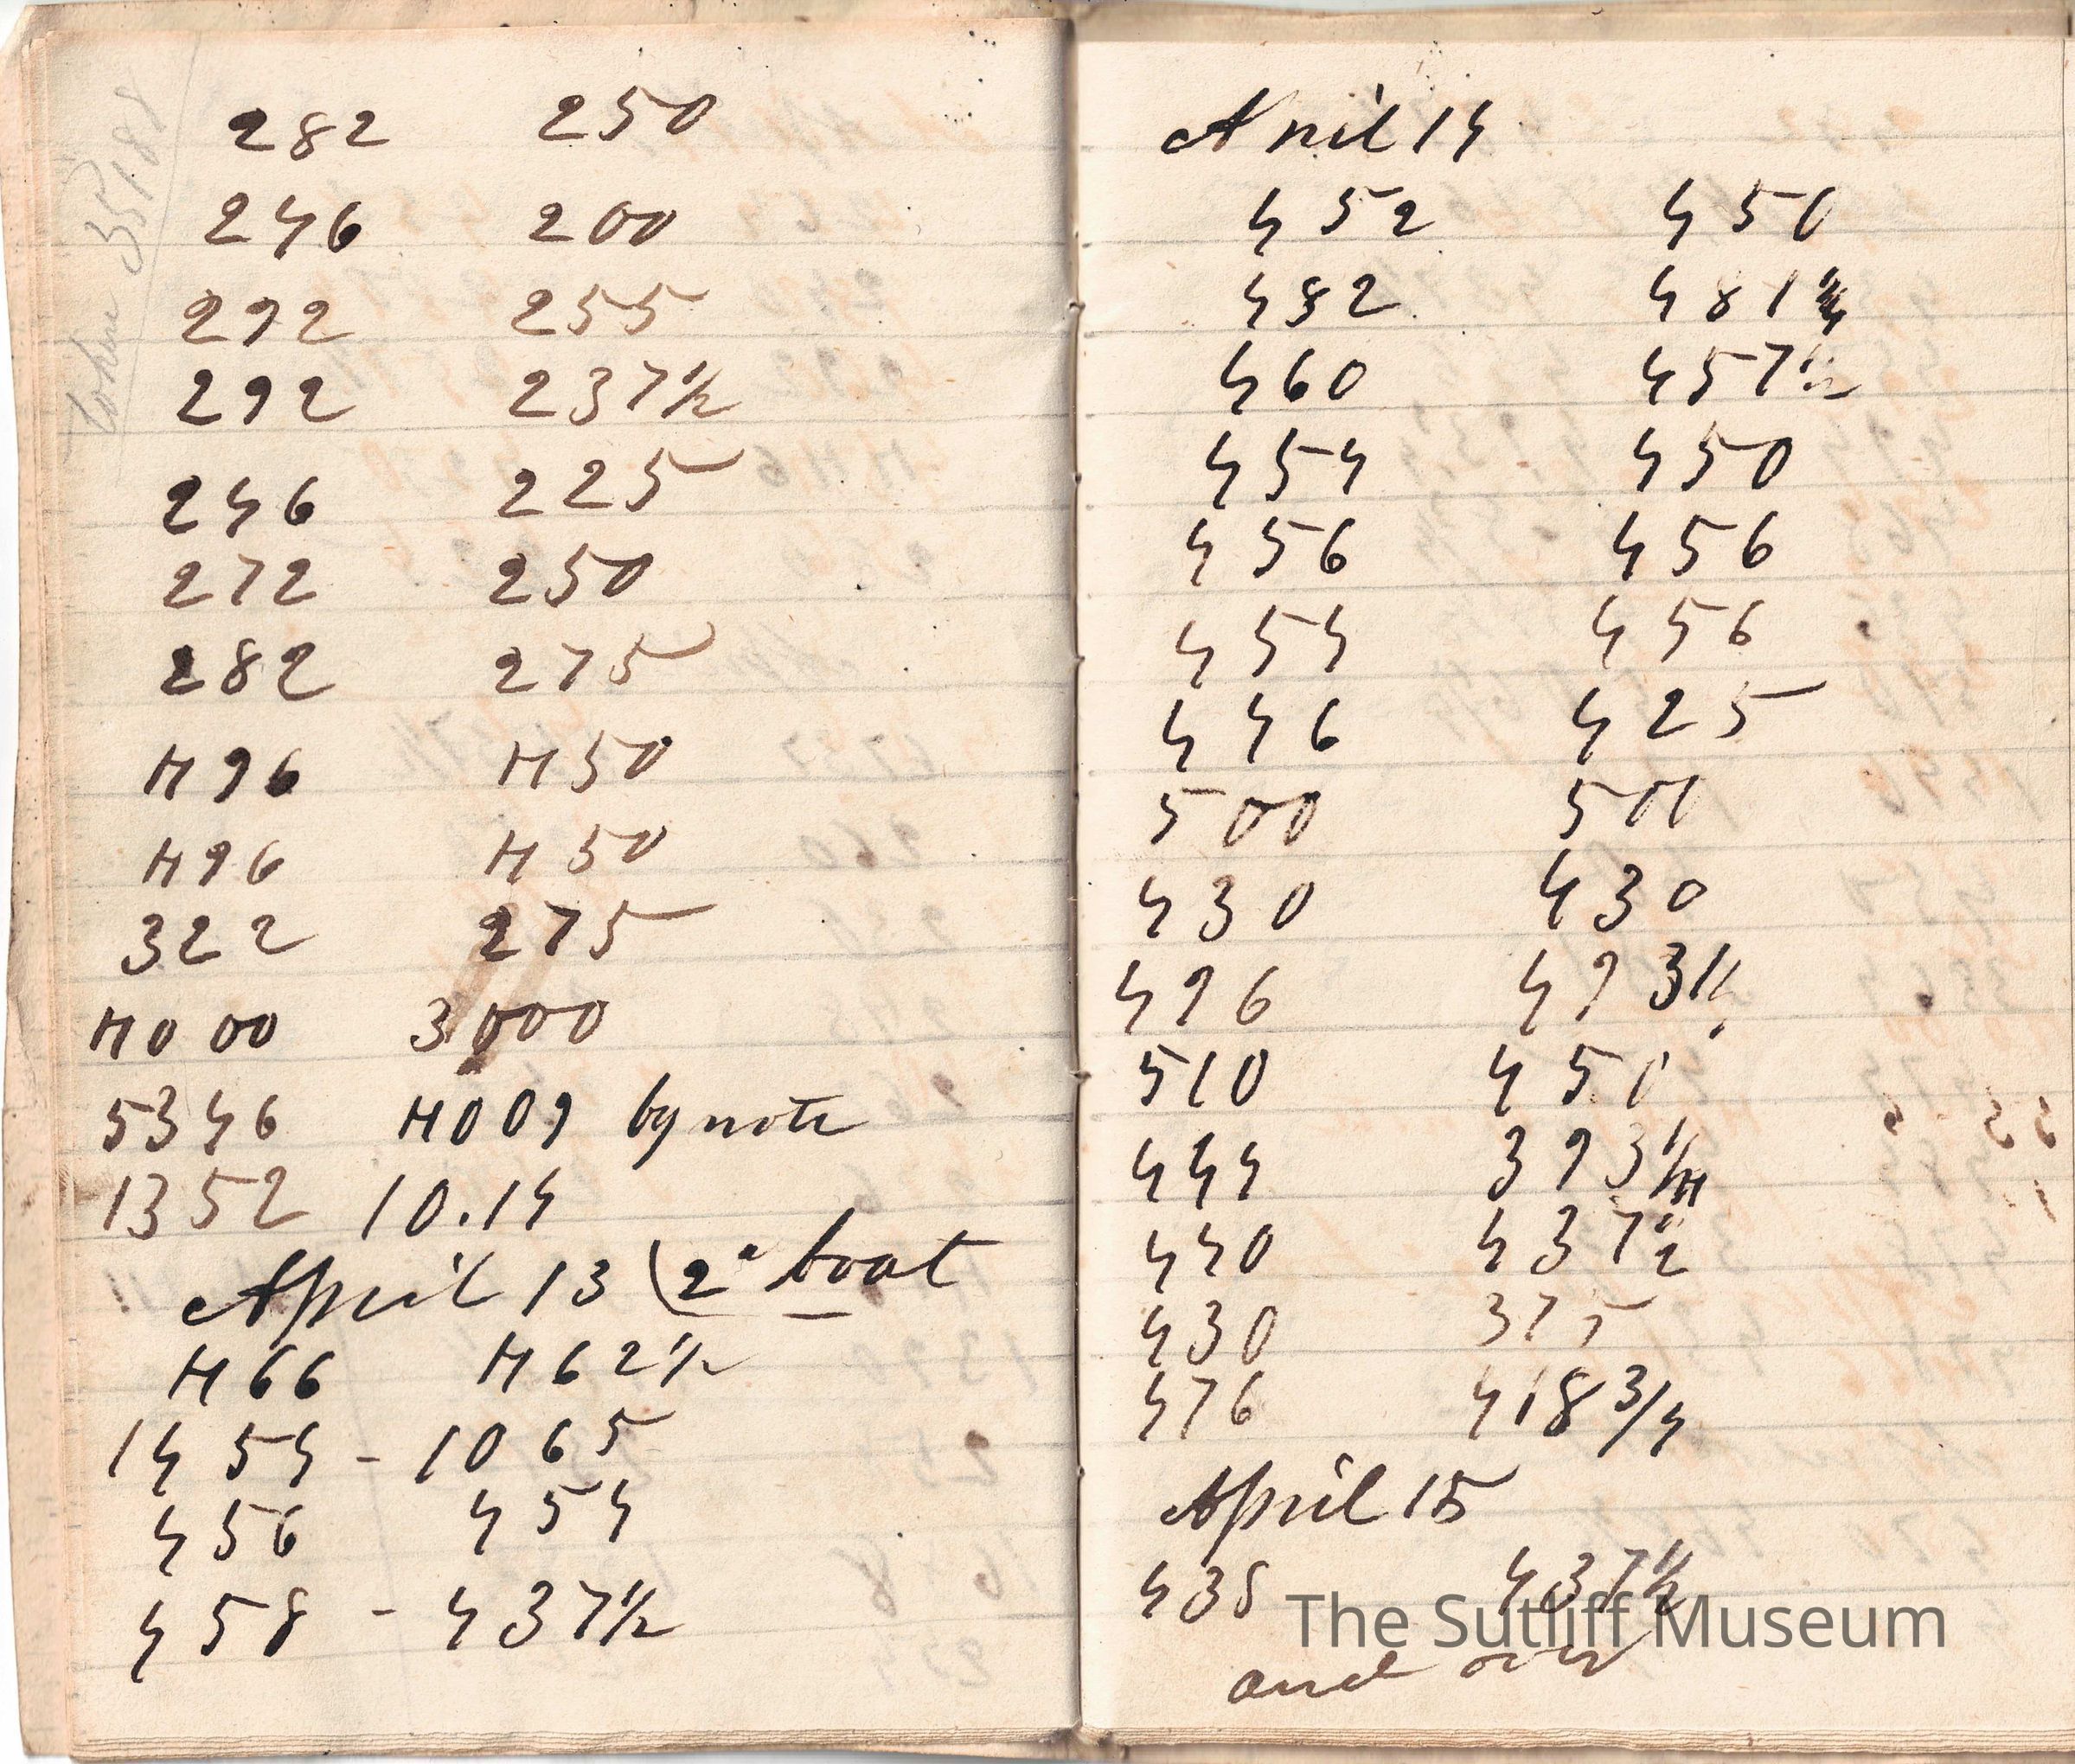 282 250
246 200
292 255
292 237½
246 225
272 250
282 275
496 450
496 450
322 275
4000 3000
5346 4009 by note
1352 10.14
April 13 (2d boat
466 462½
1454 - 1065
456 454
458 - 437½
April 14
452 450
482 481
460 457½
454 450
456 456
454 456
446 425
500 500
430 430
496 493¼
510 450
444 393¼
440 437½
430 375
476 418 3/4
April 15
438 437½
and over
The Sutliff Museum